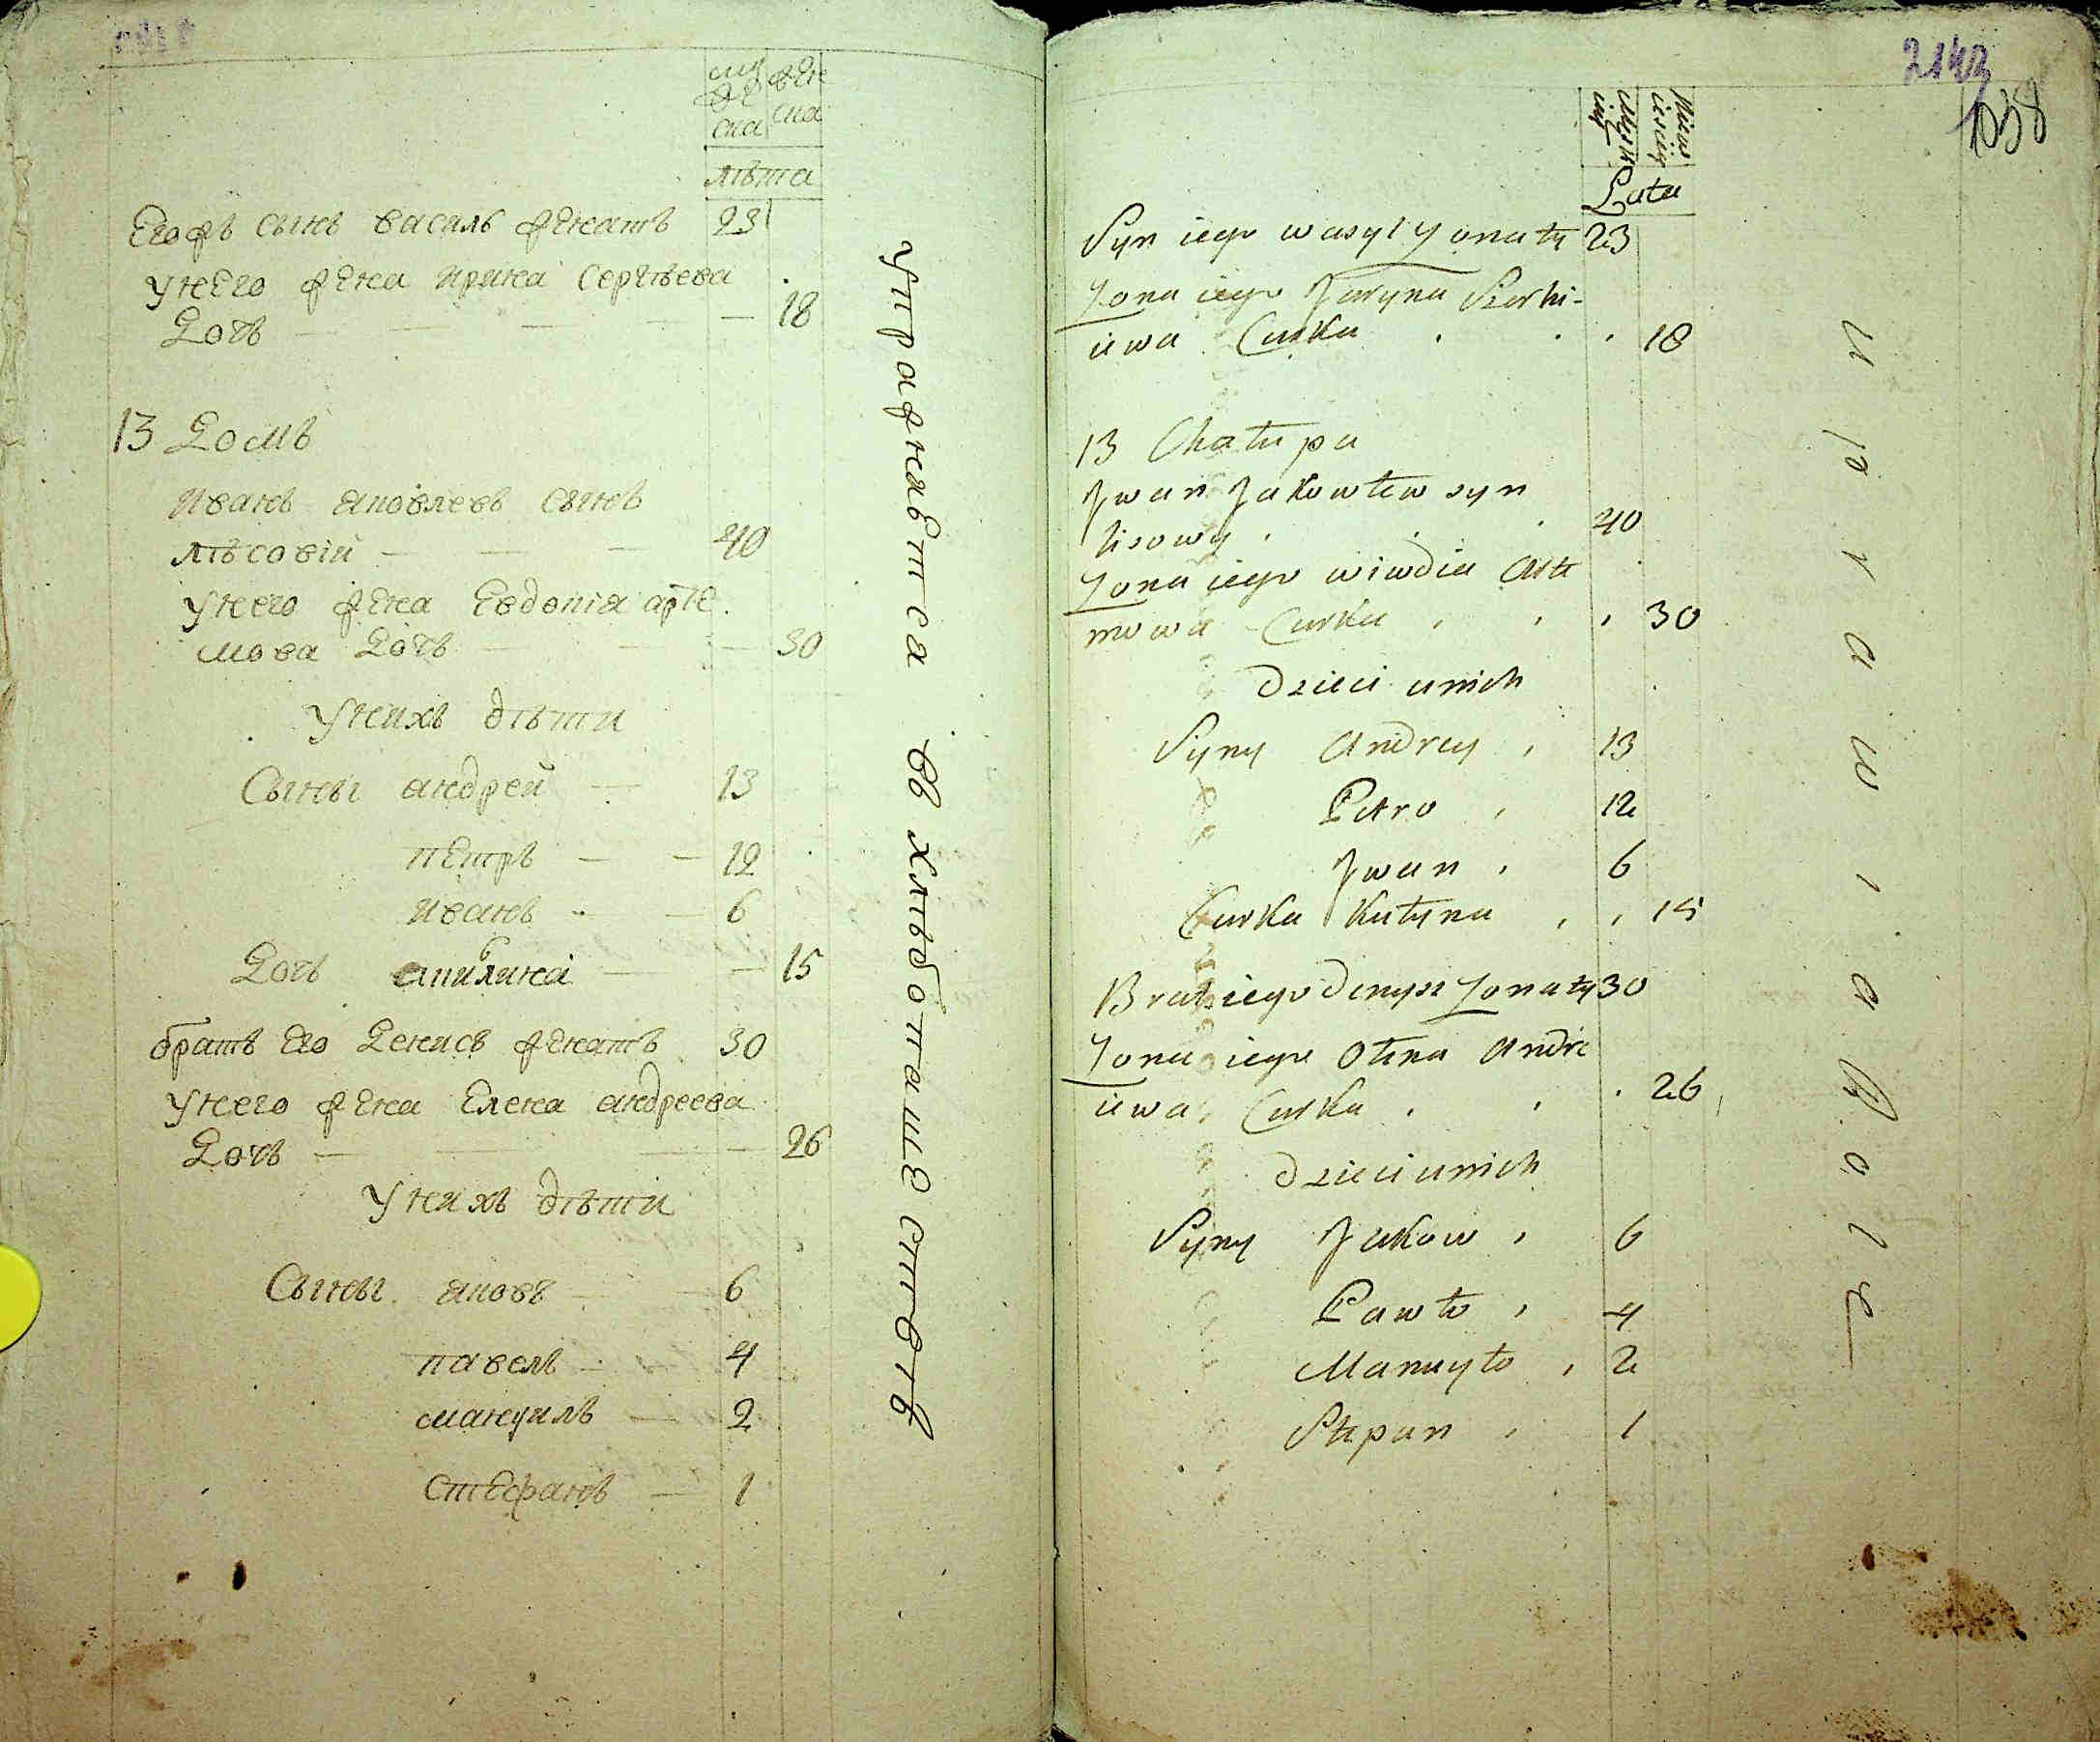 муж
ска
жен
ска
лѣта
Егожъ сынъ василь женатъ 23
унего жена ирина Сергѣева
Дочь — — — — 18
13 Домъ
Иванъ яковлевъ сынъ
лѣсовiй — — — 40
унего жена Евдокiя арте
мова Дочь — — — 30
Унихъ дѣти
Сыны андрей — 13
петръ — — 12
иванъ — — 6
Дочь акилина — — 15
братъ Его Денисъ женатъ 30
унего жена Елена андреева
Дочь — — — — 26
Унихъ дѣти
Сыны яковъ — — 6
павелъ — 4
мануилъ — 2
Стефанъ — 1
упражняются въ хлѣбопашествѣ
2143
1038
Lata
Syn iego wasyl Zonaty 23
Zona iego Jaryna Serhi-
iewa Curka . . . 18
13 Chałupa
Jwan Jakowlew syn
lisowy . . . 40
Zona iego wiwdia Arte
mowa Curka , , , 30
Dzieci unich
Syny Andrey , 13
Petro , 12
Jwan , 6
Curka Kułyna , , 15
Brat iego Denysz Zonaty 30
Zona iego Ołena Andre
iewa, Curka . , . 26
Dzieci unich
Syny Jakow , 6
Pawło , 4
Manuyło , 2
Stepan , 1
uprawia Role